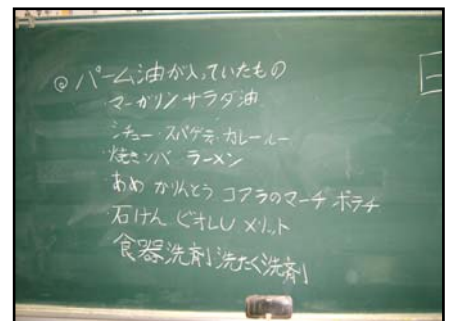 ◎パーム油が入っていたもの
マーガリン サラダ油
シチュー・スパゲティ・カレールー
焼きソバ ラーメン
あめ かりんとう コアラのマーチ ポテチ
石けん ビオレU メリット
食器洗剤 洗たく洗剤